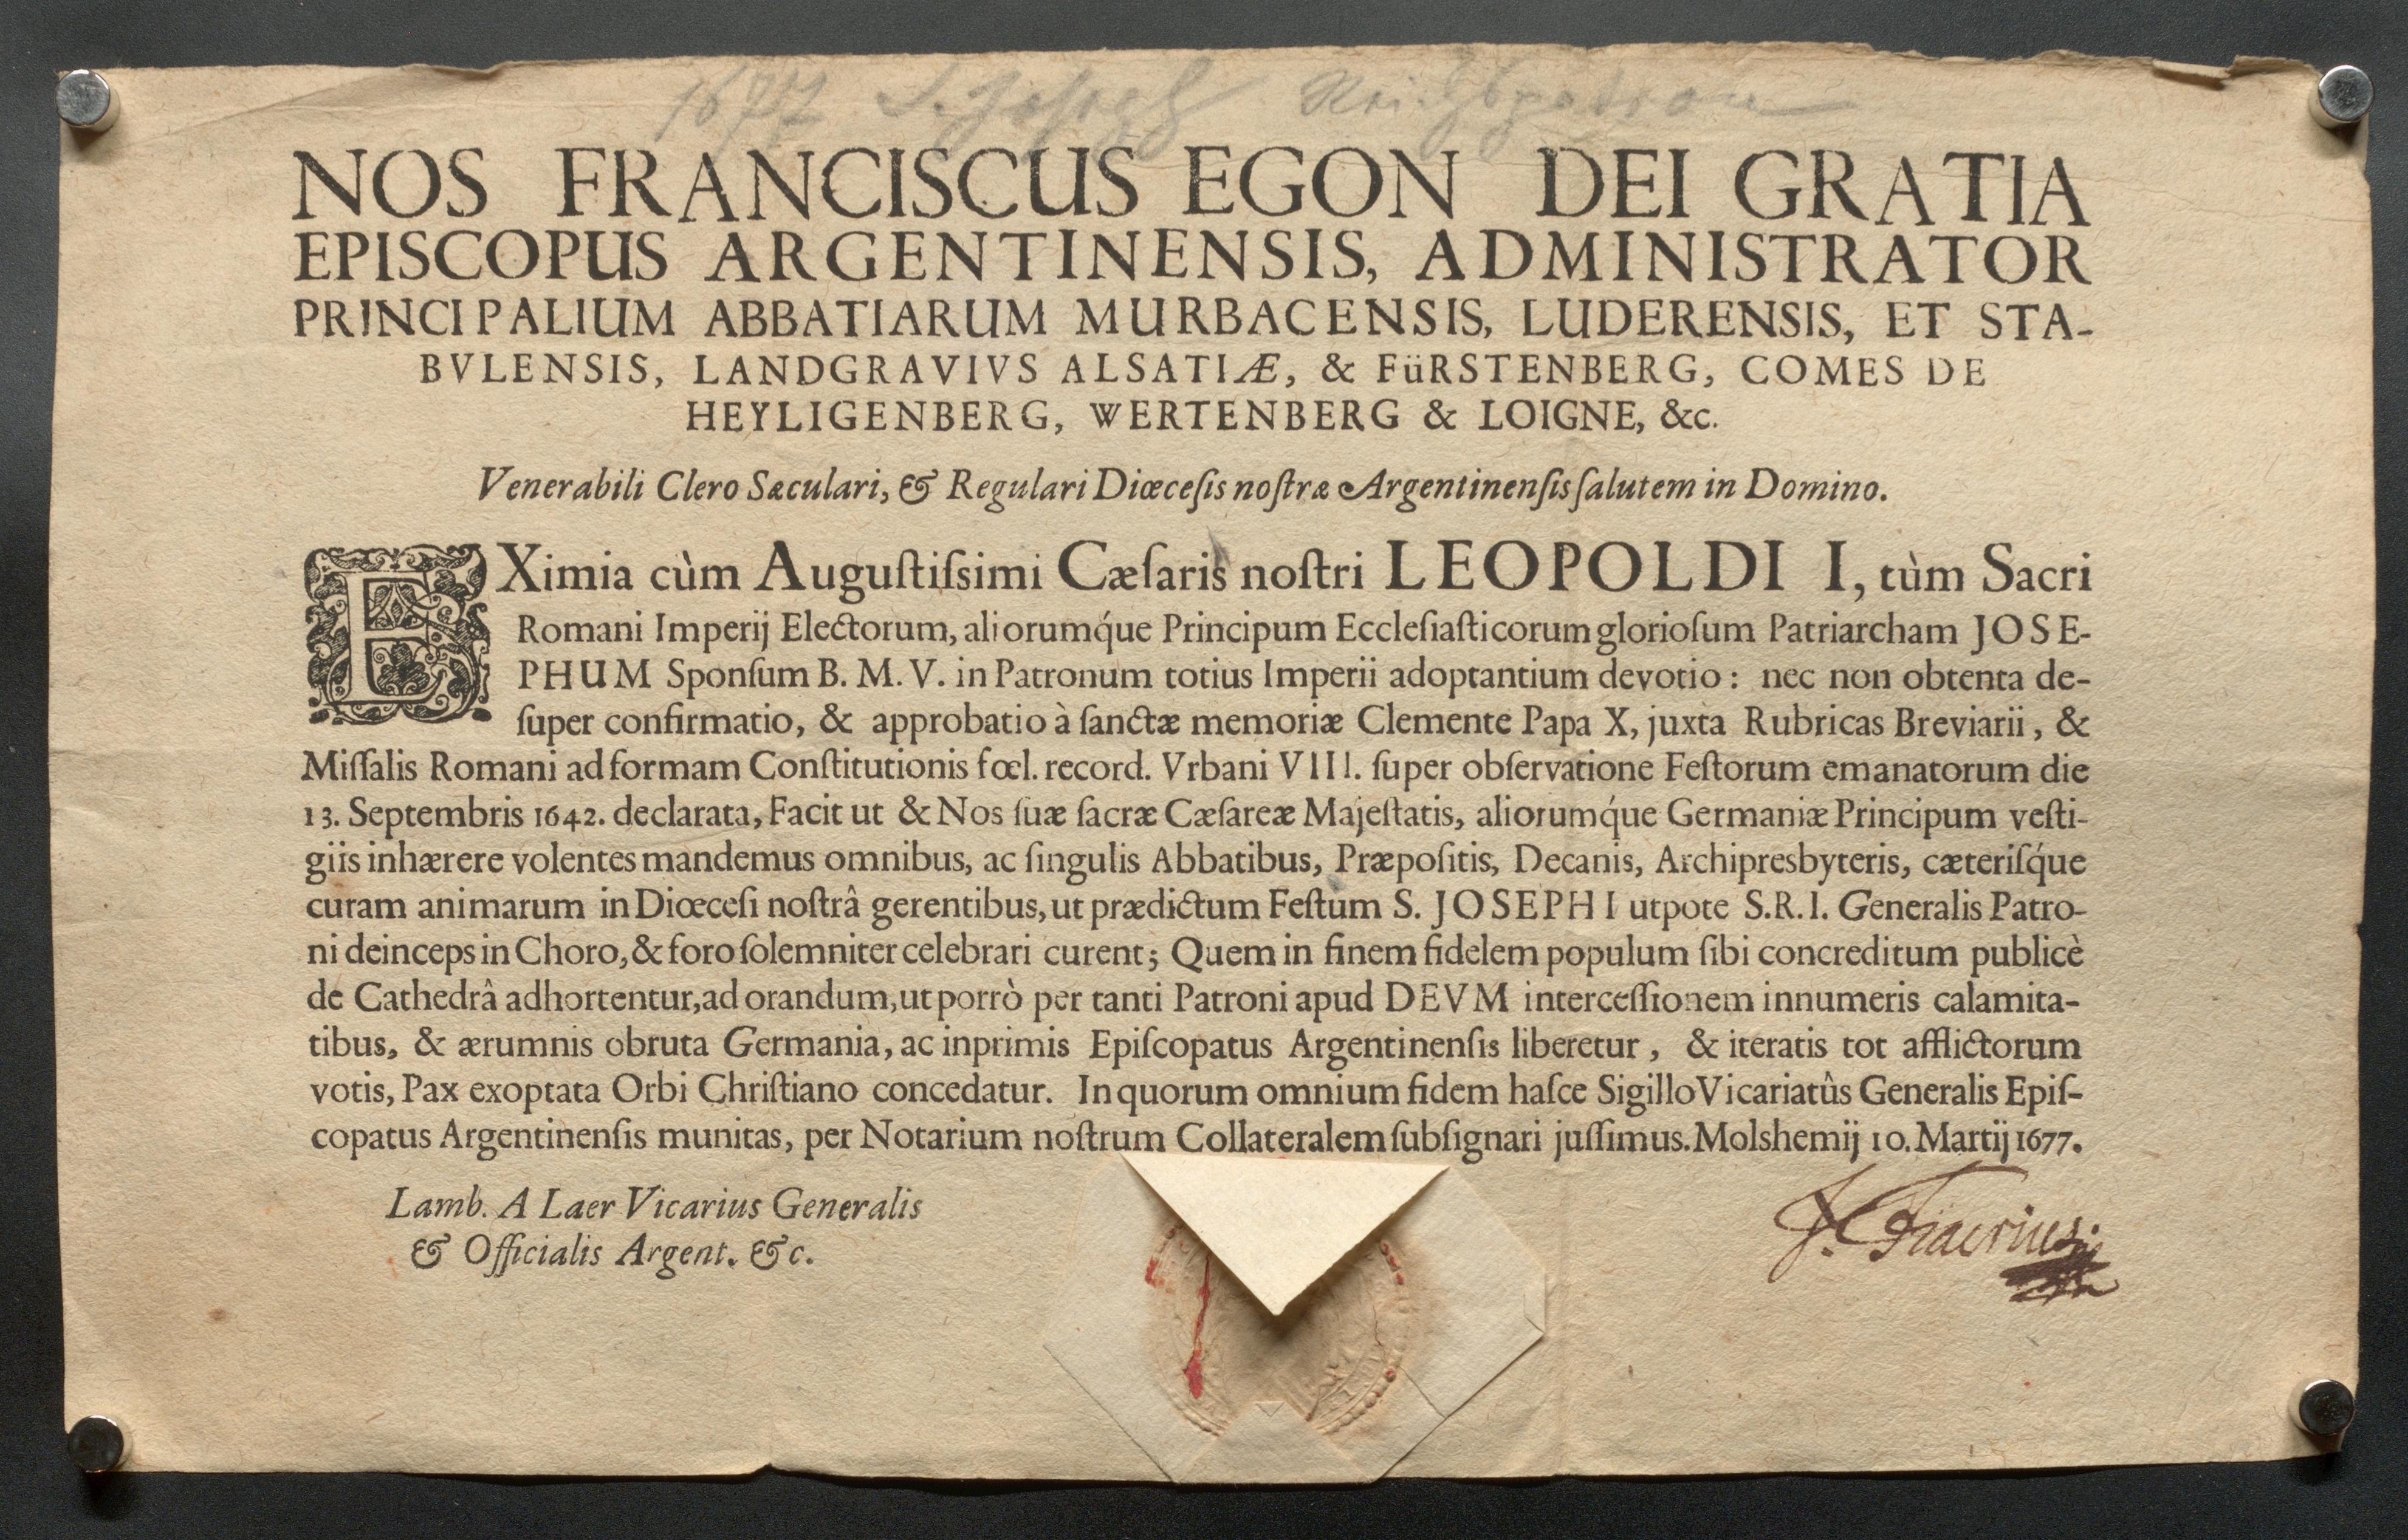 1677 S. Joseph Reichspatron
NOS FRANCISCUS EGON DEI GRATIA
EPISCOPUS ARGENTINENSIS, ADMINISTRATOR
PRINCIPALIUM ABBATIARUM MURBACENSIS, LUDERENSIS, ET STA-
BVLENSIS, LANDGRAVIVS ALSATIÆ, & FüRSTENBERG, COMES DE
HEYLIGENBERG, WERTENBERG & LOIGNE, &c.
Venerabili Clero Sæculari, & Regulari Diœceſis noſtræ Argentinenſis ſalutem in Domino.
EXimia cùm Auguſtiſsimi Cæſaris noſtri LEOPOLDI I, tùm Sacri
Romani Imperij Electorum, aliorumq́ue Principum Eccleſiaſticorum glorioſum Patriarcham JOSE-
PHUM Sponſum B. M. V. in Patronum totius Imperii adoptantium devotio: nec non obtenta de-
ſuper confirmatio, & approbatio à ſanctæ memoriæ Clemente Papa X, juxta Rubricas Breviarii, &
Miſſalis Romani ad formam Conſtitutionis fœl. record. Vrbani VIII. ſuper obſervatione Feſtorum emanatorum die
13. Septembris 1642. declarata, Facit ut & Nos ſuæ ſacræ Cæſareæ Majeſtatis, aliorumq́ue Germaniæ Principum veſti-
giis inhærere volentes mandemus omnibus, ac ſingulis Abbatibus, Præpoſitis, Decanis, Archipresbyteris, cæteriſq́ue
curam animarum in Diœceſi noſtrâ gerentibus, ut prædictum Feſtum S. JOSEPHI utpote S.R.I. Generalis Patro-
ni deinceps in Choro, & foro ſolemniter celebrari curent; Quem in finem fidelem populum ſibi concreditum publicè
de Cathedrâ adhortentur, ad orandum, ut porrò per tanti Patroni apud DEVM interceſſionem innumeris calamita-
tibus, & ærumnis obruta Germania, ac inprimis Epiſcopatus Argentinenſis liberetur, & iteratis tot afflictorum
votis, Pax exoptata Orbi Chriſtiano concedatur. In quorum omnium fidem haſce Sigillo Vicariatûs Generalis Epiſ-
copatus Argentinenſis munitas, per Notarium noſtrum Collateralem ſubſignari juſſimus. Molshemij 10. Martij 1677.
Lamb. A Laer Vicarius Generalis
& Officialis Argent. &c.